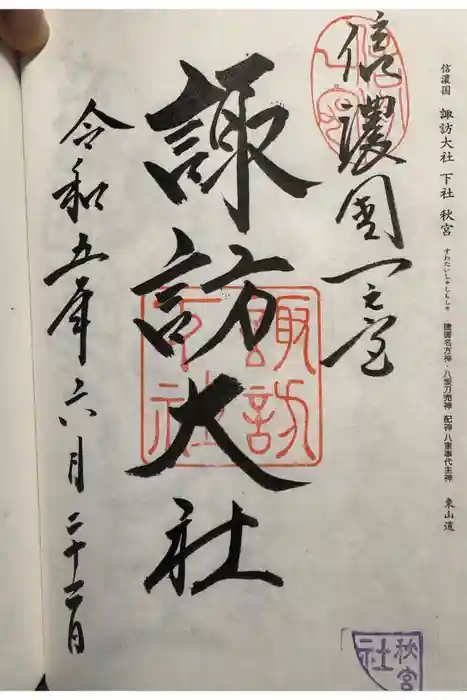 信濃国 諏訪大社 下社 秋宮 すわたいしゃしもしゃ 建御名方神・八坂刀売神 配神 八重事代主神 東山道
信濃國一之宮
諏訪大社
諏訪
下社
令和五年六月二十二日
秋宮
社